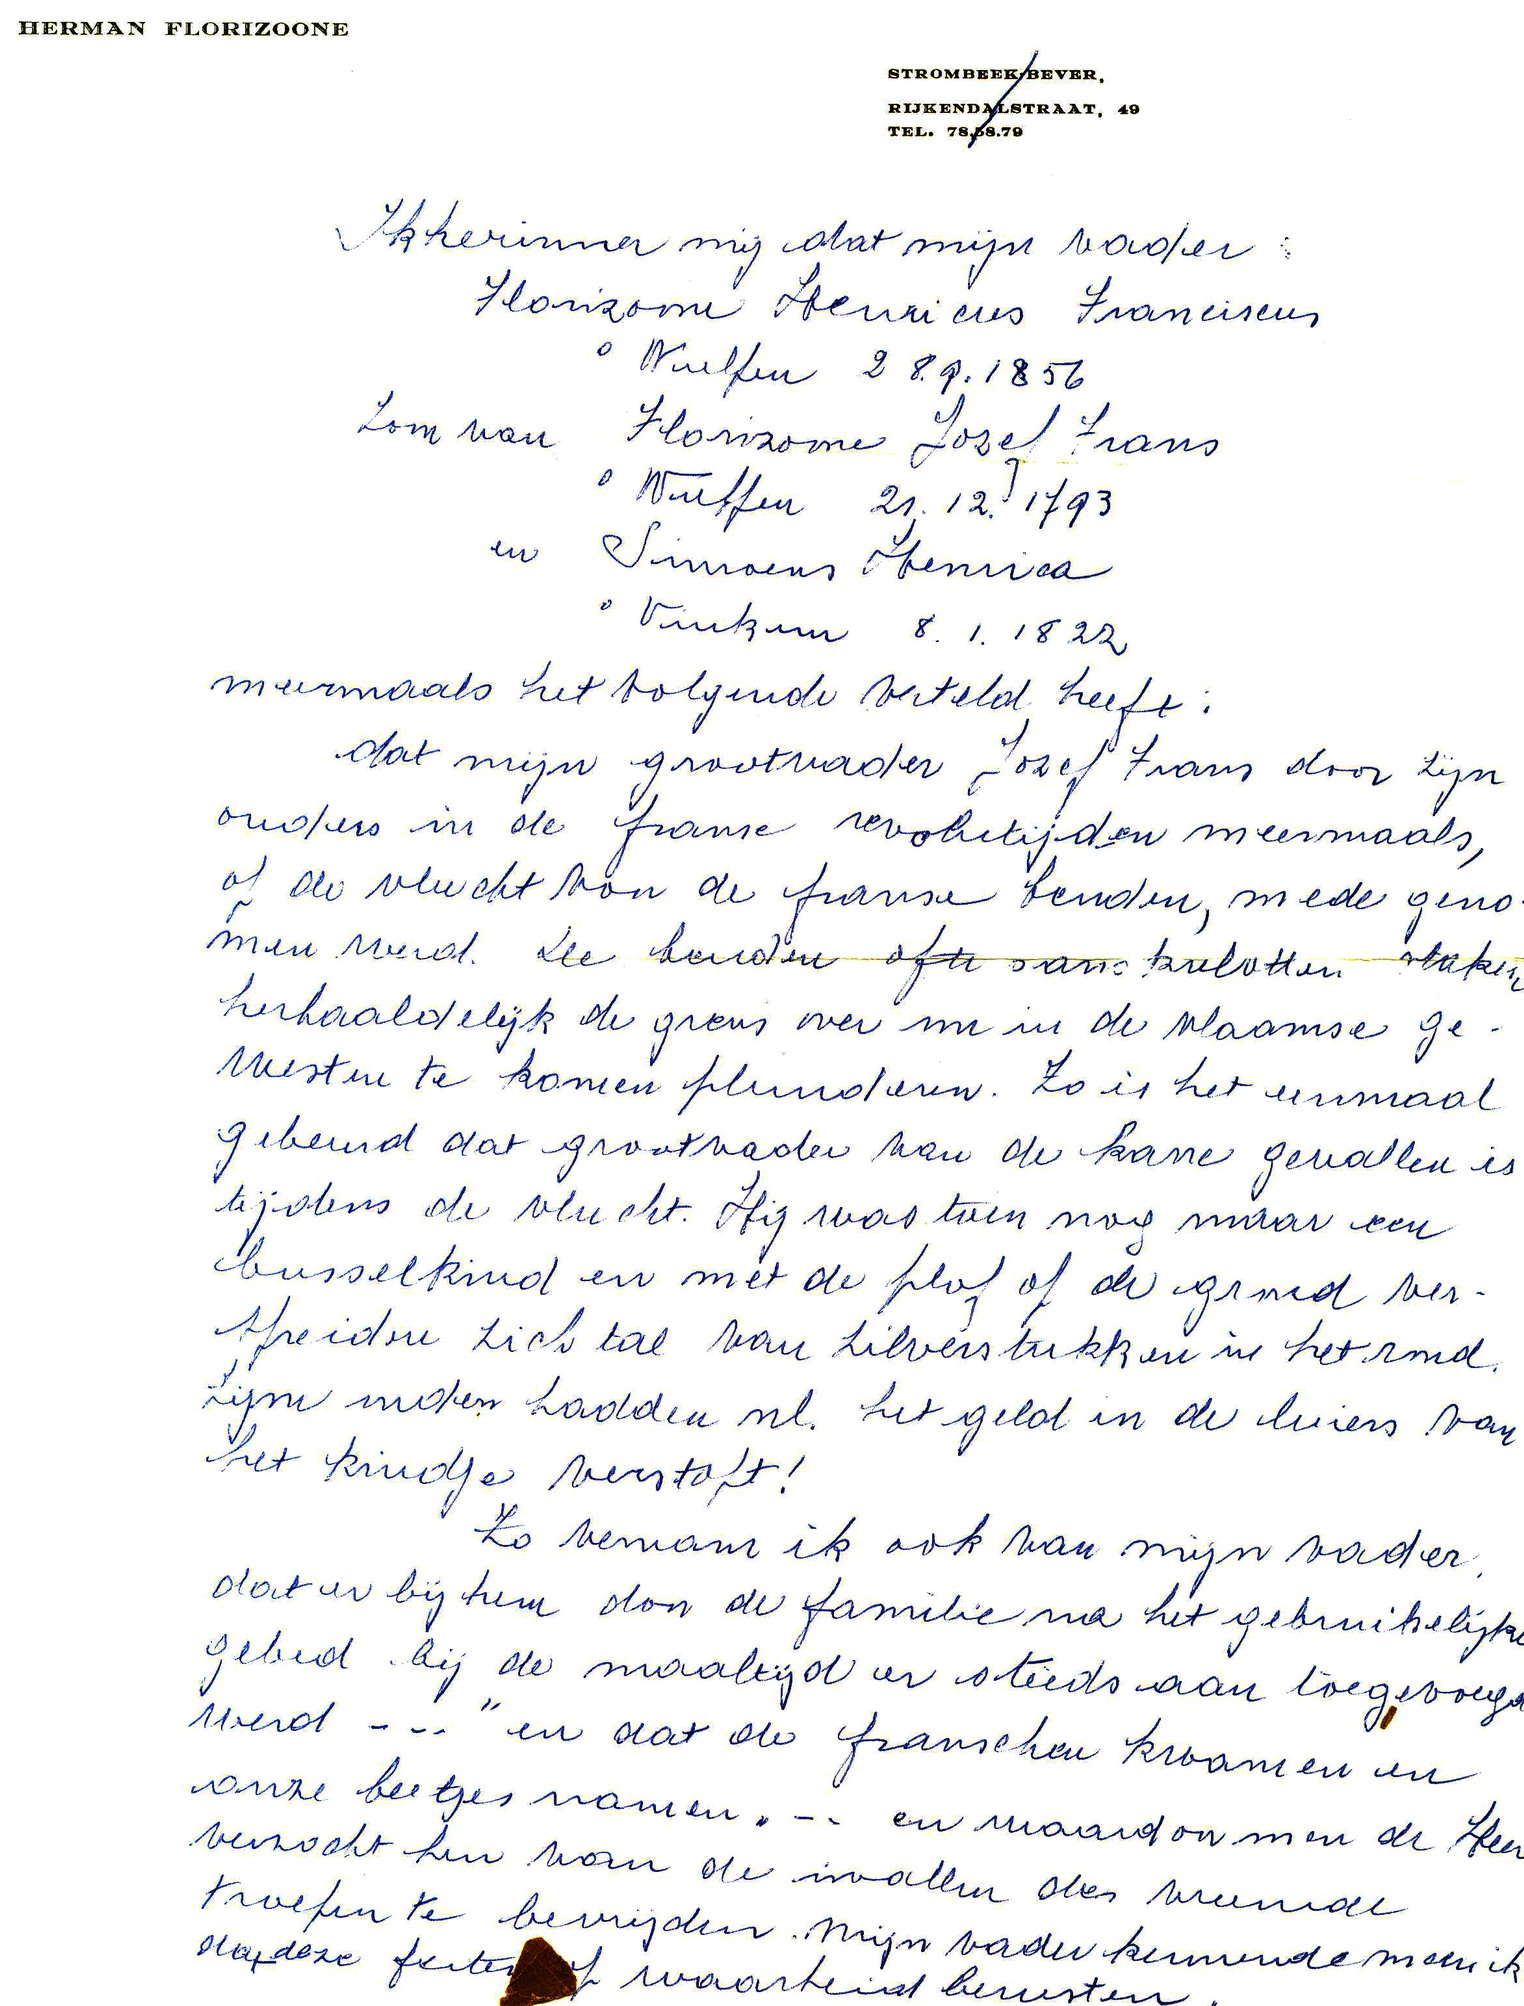 HERMAN FLORIZOONE
STROMBEEK-BEVER,
RIJKENDALSTRAAT, 49
TEL. 78.58.79
Ik herinner mij dat mijn vader :
Florizoone Henricus Franciscus
° Wulfen 28.9.1856
Zoon van Florizoone Jozef Frans
° Wulffen 21.12.1793
en Simoens Henrica
° Vinkem 8.1.1822
meermaals het volgende verteld heeft :
dat mijn grootvader Jozef Frans door zijn
ouders in de franse revolutijden meermaals,
of de vlucht von de franse benden, mede geno-
men werd. De benden ofte sanskulotten staken
herhaaldelijk de grens over om in de vlaamse ge-
westen te komen plunderen. Zo is het eenmaal
gebeurd dat grootvader van de karre gevallen is
tijdens de vlucht. Hij was toen nog maar een
busselkind en met de plof of de grond ver-
spreiden zich tal van zilverstukken in het rond.
Zijne ouders hadden nl. het geld in de luiers van
het kindje verstopt!
Zo vernam ik ook van mijn vader,
dat er bij hem door de familie na het gebruikelijke
gebed bij de maaltijd er steeds aan toegevoegd
werd --- "en dat de franschen kwamen en
onze beetjes namen. -- en waardoor men de Heer
verzocht hen van de invallen der vreemde
troepen te bevrijden. Mijn vader kennende meen ik
dat deze feiten of waarheid berusten.